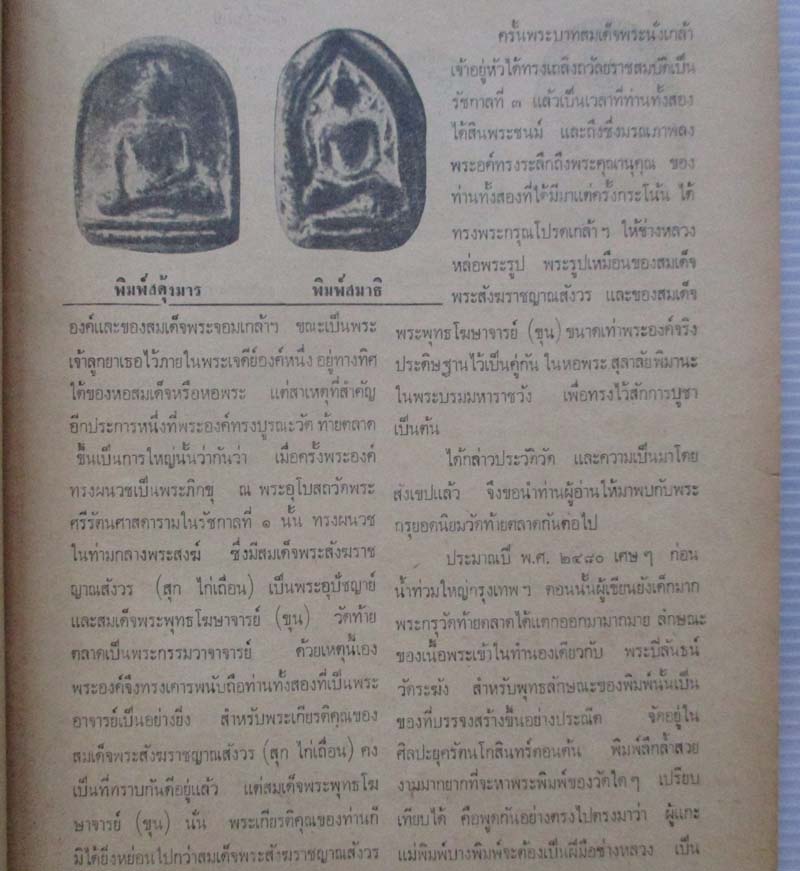 พิมพ์สดุ้งมาร
พิมพ์สมาธิ
องค์และของสมเด็จพระจอมเกล้าฯ ขณะเป็นพระ
เจ้าลูกยาเธอไว้ภายในพระเจดีย์องค์หนึ่ง อยู่ทางทิศ
ใต้ของหอสมเด็จหรือหอพระ แต่สาเหตุที่สำคัญ
อีกประการหนึ่งที่พระองค์ทรงบูรณะวัดท้ายตลาด
ขึ้นเป็นการใหญ่นั้นว่ากันว่า เมื่อครั้งพระองค์
ทรงผนวชเป็นพระภิกขุ ณ พระอุโบสถวัดพระ
ศรีรัตนศาสดารามในรัชกาลที่ ๑ นั้น ทรงผนวช
ในท่ามกลางพระสงฆ์ ซึ่งมีสมเด็จพระสังฆราช
ญาณสังวร (สุก ไก่เถื่อน) เป็นพระอุปัชญาย์
และสมเด็จพระพุทธโฆษาจารย์ (ขุน) วัดท้าย
ตลาดเป็นพระกรรมวาจาจารย์ ด้วยเหตุนี้เอง
พระองค์จึงทรงเคารพนับถือท่านทั้งสองที่เป็นพระ
อาจารย์เป็นอย่างยิ่ง สำหรับพระเกียรติคุณของ
สมเด็จพระสังฆราชญาณสังวร (สุก ไก่เถื่อน) คง
เป็นที่ทราบกันดีอยู่แล้ว แต่สมเด็จพระพุทธโฆ
ษาจารย์ (ขุน) นั้น พระเกียรติคุณของท่านก็
มิได้ยิ่งหย่อนไปกว่าสมเด็จพระสังฆราชญาณสังวร
ครั้นพระบาทสมเด็จพระนั่งเกล้า
เจ้าอยู่หัวได้ทรงเถลิงถวัลยราชสมบัติเป็น
รัชกาลที่ ๓ แล้วเป็นเวลาที่ท่านทั้งสอง
ได้สิ้นพระชนม์ และถึงซึ่งมรณภาพลง
พระองค์ทรงระลึกถึงพระคุณานุคุณ ของ
ท่านทั้งสองที่ได้มีมาแต่ครั้งกระโน้น ได้
ทรงพระกรุณโปรดเกล้าฯ ให้ช่างหลวง
หล่อพระรูป พระรูปเหมือนของสมเด็จ
พระสังฆราชญาณสังวร และของสมเด็จ
พระพุทธโฆษาจารย์ (ขุน) ขนาดเท่าพระองค์จริง
ประดิษฐานไว้เป็นคู่กัน ในหอพระสุลาลัยพิมานะ
ในพระบรมมหาราชวัง เพื่อทรงไว้สักการบูชา
เป็นต้น
ได้กล่าวประวัติวัด และความเป็นมาโดย
สังเขปแล้ว จึงขอนำท่านผู้อ่านให้มาพบกับพระ
กรุยอดนิยมวัดท้ายตลาดกันต่อไป
ประมาณปี พ.ศ. ๒๔๘๐ เศษๆ ก่อน
น้ำท่วมใหญ่กรุงเทพฯ ตอนนั้นผู้เขียนยังเด็กมาก
พระกรุวัดท้ายตลาดได้แตกออกมามากมาย ลักษณะ
ของเนื้อพระเข้าในทำนองเดียวกับ พระปิลันธน์
วัดระฆัง สำหรับพุทธลักษณะของพิมพ์นั้นเป็น
ของที่บรรจงสร้างขึ้นอย่างประณีต จัดอยู่ใน
ศิลปะยุครัตนโกสินทร์ตอนต้น พิมพ์ลึกล้ำสวย
งามมากยากที่จะหาพระพิมพ์ของวัดใดๆ เปรียบ
เทียบได้ คือพูดกันอย่างตรงไปตรงมาว่า ผู้แกะ
แม่พิมพ์บางพิมพ์จะต้องเป็นฝีมือช่างหลวง เป็น